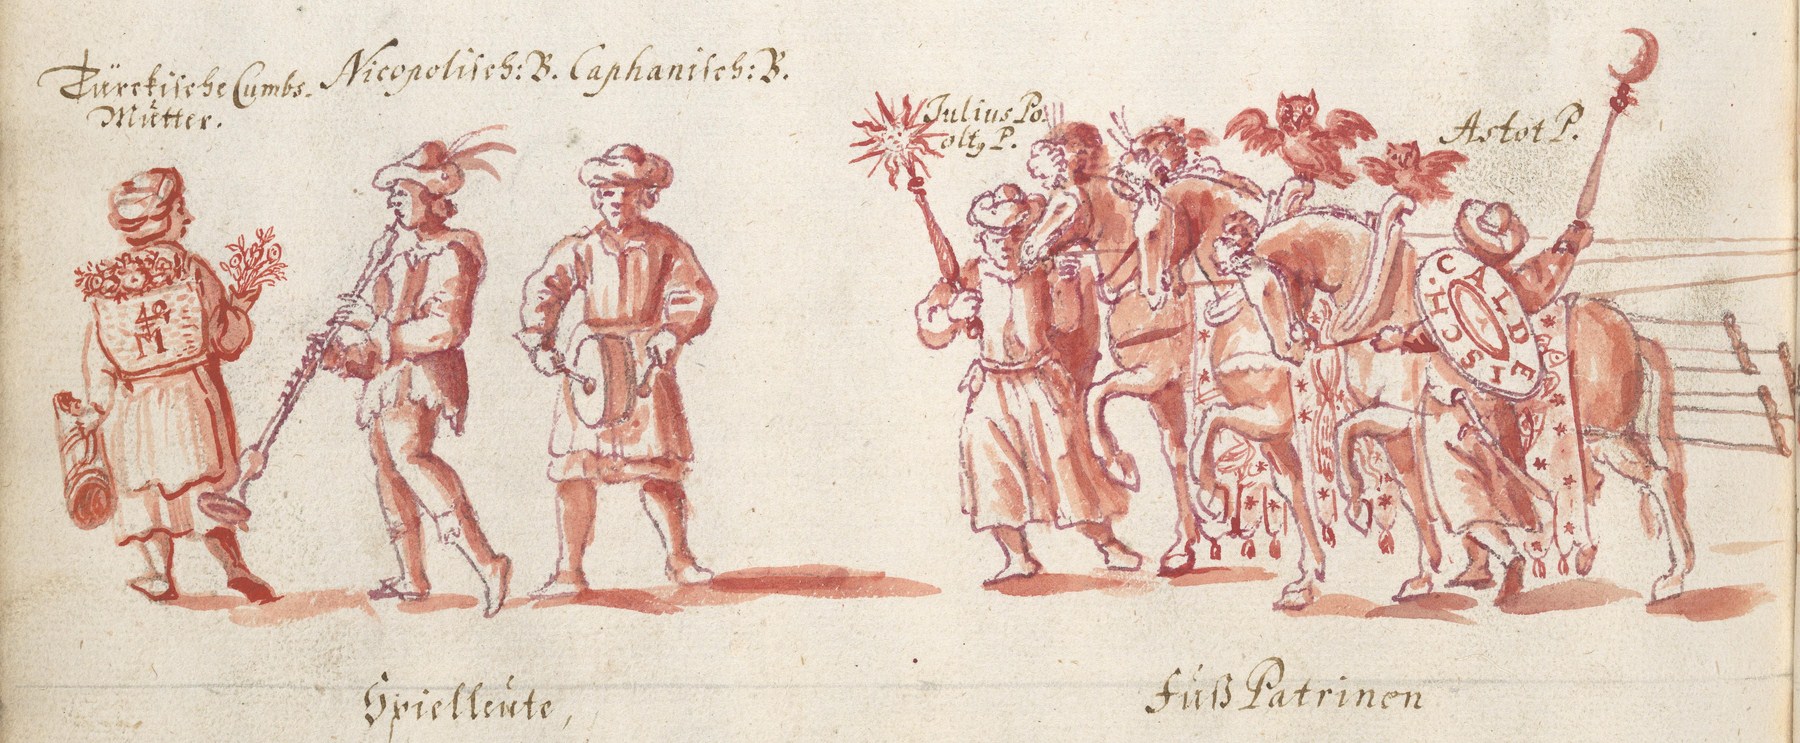 Türckische Cumbs-
Mütter.
Nicopolisch: B. Caphanisch: B.
Julius Po.
P.
Astot P.
M
CALDE
ISCH
Spielleüte,
Füß Patrinen